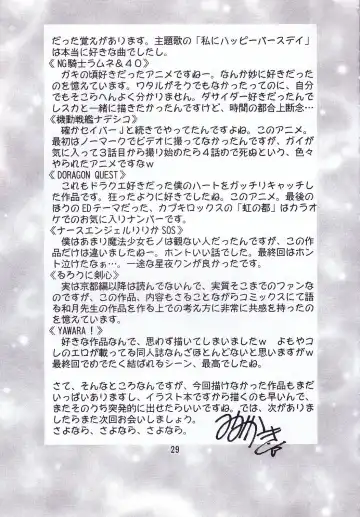 だった覚えがあります。主題歌の「私にハッピーバースデイ」
は本当に好きな曲でしたし。
《NG騎士ラムネ＆40》
ガキの頃好きだったアニメですねー。なんか妙に好きだったの
を憶えています。ワタルがそうでもなかったってのに、自分
でもそこらへんよく分かりません。ダサイダー好きだったんで
レスカと一緒に描きたかったんですけど、時間の都合上断念…
《機動戦艦ナデシコ》
確かセイバーＪと続きでやってたんですよね。このアニメ。
最初はノーマークでビデオに撮ってなかったんですが、ガイが
気に入って３話目から撮り始めたら４話めで死ぬという、色々
やられたアニメですなｗ
《DORAGON QUEST》
これもドラクエ好きだった僕のハートをガッチリキャッチした
作品です。狂ったように好きでした。このアニメ。最後の
ほうのEDテーマだった、カブキロックスの「虹の都」はカラオ
ケでのお気に入りナンバーです。
《ナースエンジェルりりかSOS》
僕はあまり魔法少女モノは観ない人だったんですが、この作
品だけは違いましたねー。ホントいい話でした。最終回はホン
ト泣けたなぁ…。一途な星夜クンが良かったです。
《るろうに剣心》
実は京都編以降は読んでないんで、実質そこまでのファンな
のですが、この作品、内容もさることながらコミックスにて語
る和月先生の作品を作る上での考え方に非常に共感を持ったの
を憶えています。
《YAWARA！》
好きな作品なんで、思わず描いてしまいましたｗ　よもやコ
レのエロが載ってる同人誌なんざほとんどないと思いますがｗ
最終回でめでたく結ばれるシーン、最高でしたね。
さて、そんなところなんですが、今回描けなかった作品もまだ
いっぱいありますし、イラスト本ですから描くのも早いんで、
またそのうち突発的に出せたらいいですね。では、次がありま
したらまた次回お会いしましょう。
さよなら、さよなら、さよなら。
29